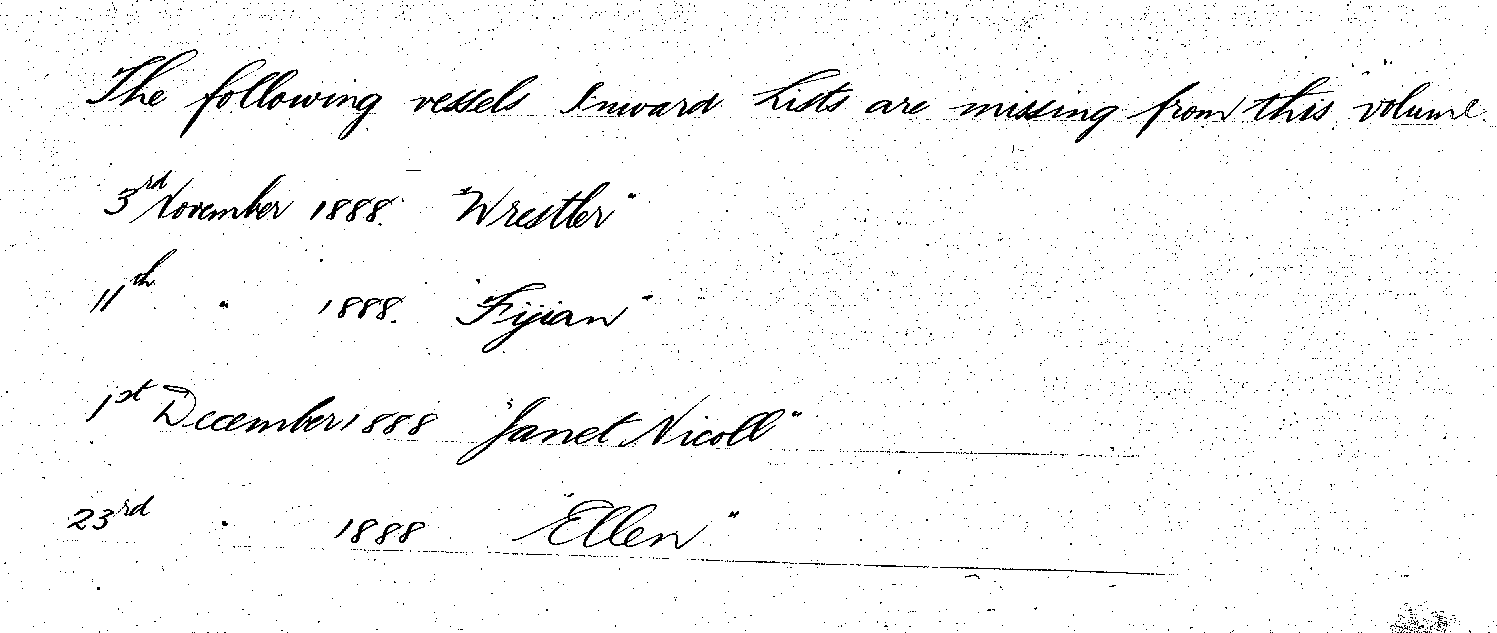 The following vessels Inward Lists are missing from this volume.
3rd November 1888. "Wrestler"
11th " 1888. "Fijian"
1st December 1888 "Janet Nicoll"
23rd " 1888 "Ellen"